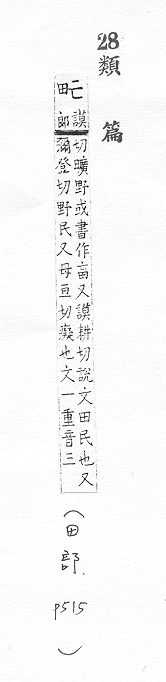 28類篇
𤰫謨
郎切曠野或書作㽘又謨耕切說文田民也又
彌登切野民又母亘切癡也文一重音三
(田部.
p515)